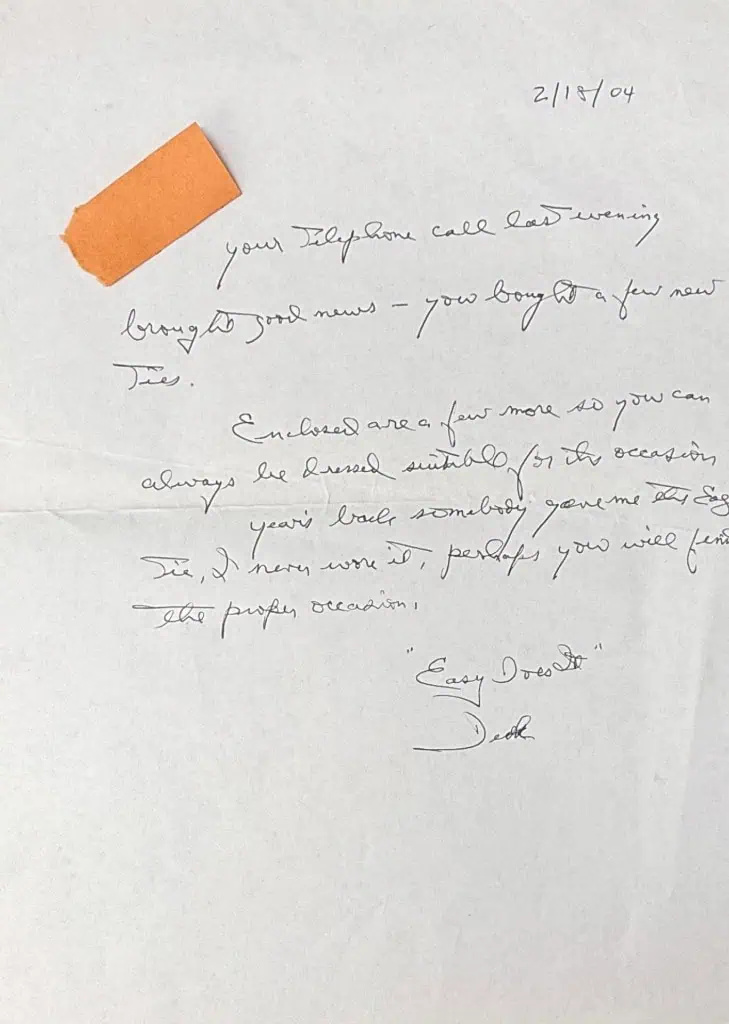 2/18/04
your Telephone call last evening
brought good news – you bought a few new
Ties.
Enclosed are a few more so you can
always be dressed suitible for the occasion
years back somebody gave me this Eag
Tie, I never wore it, perhaps you will find
the proper occasion.
"Easy Does It"